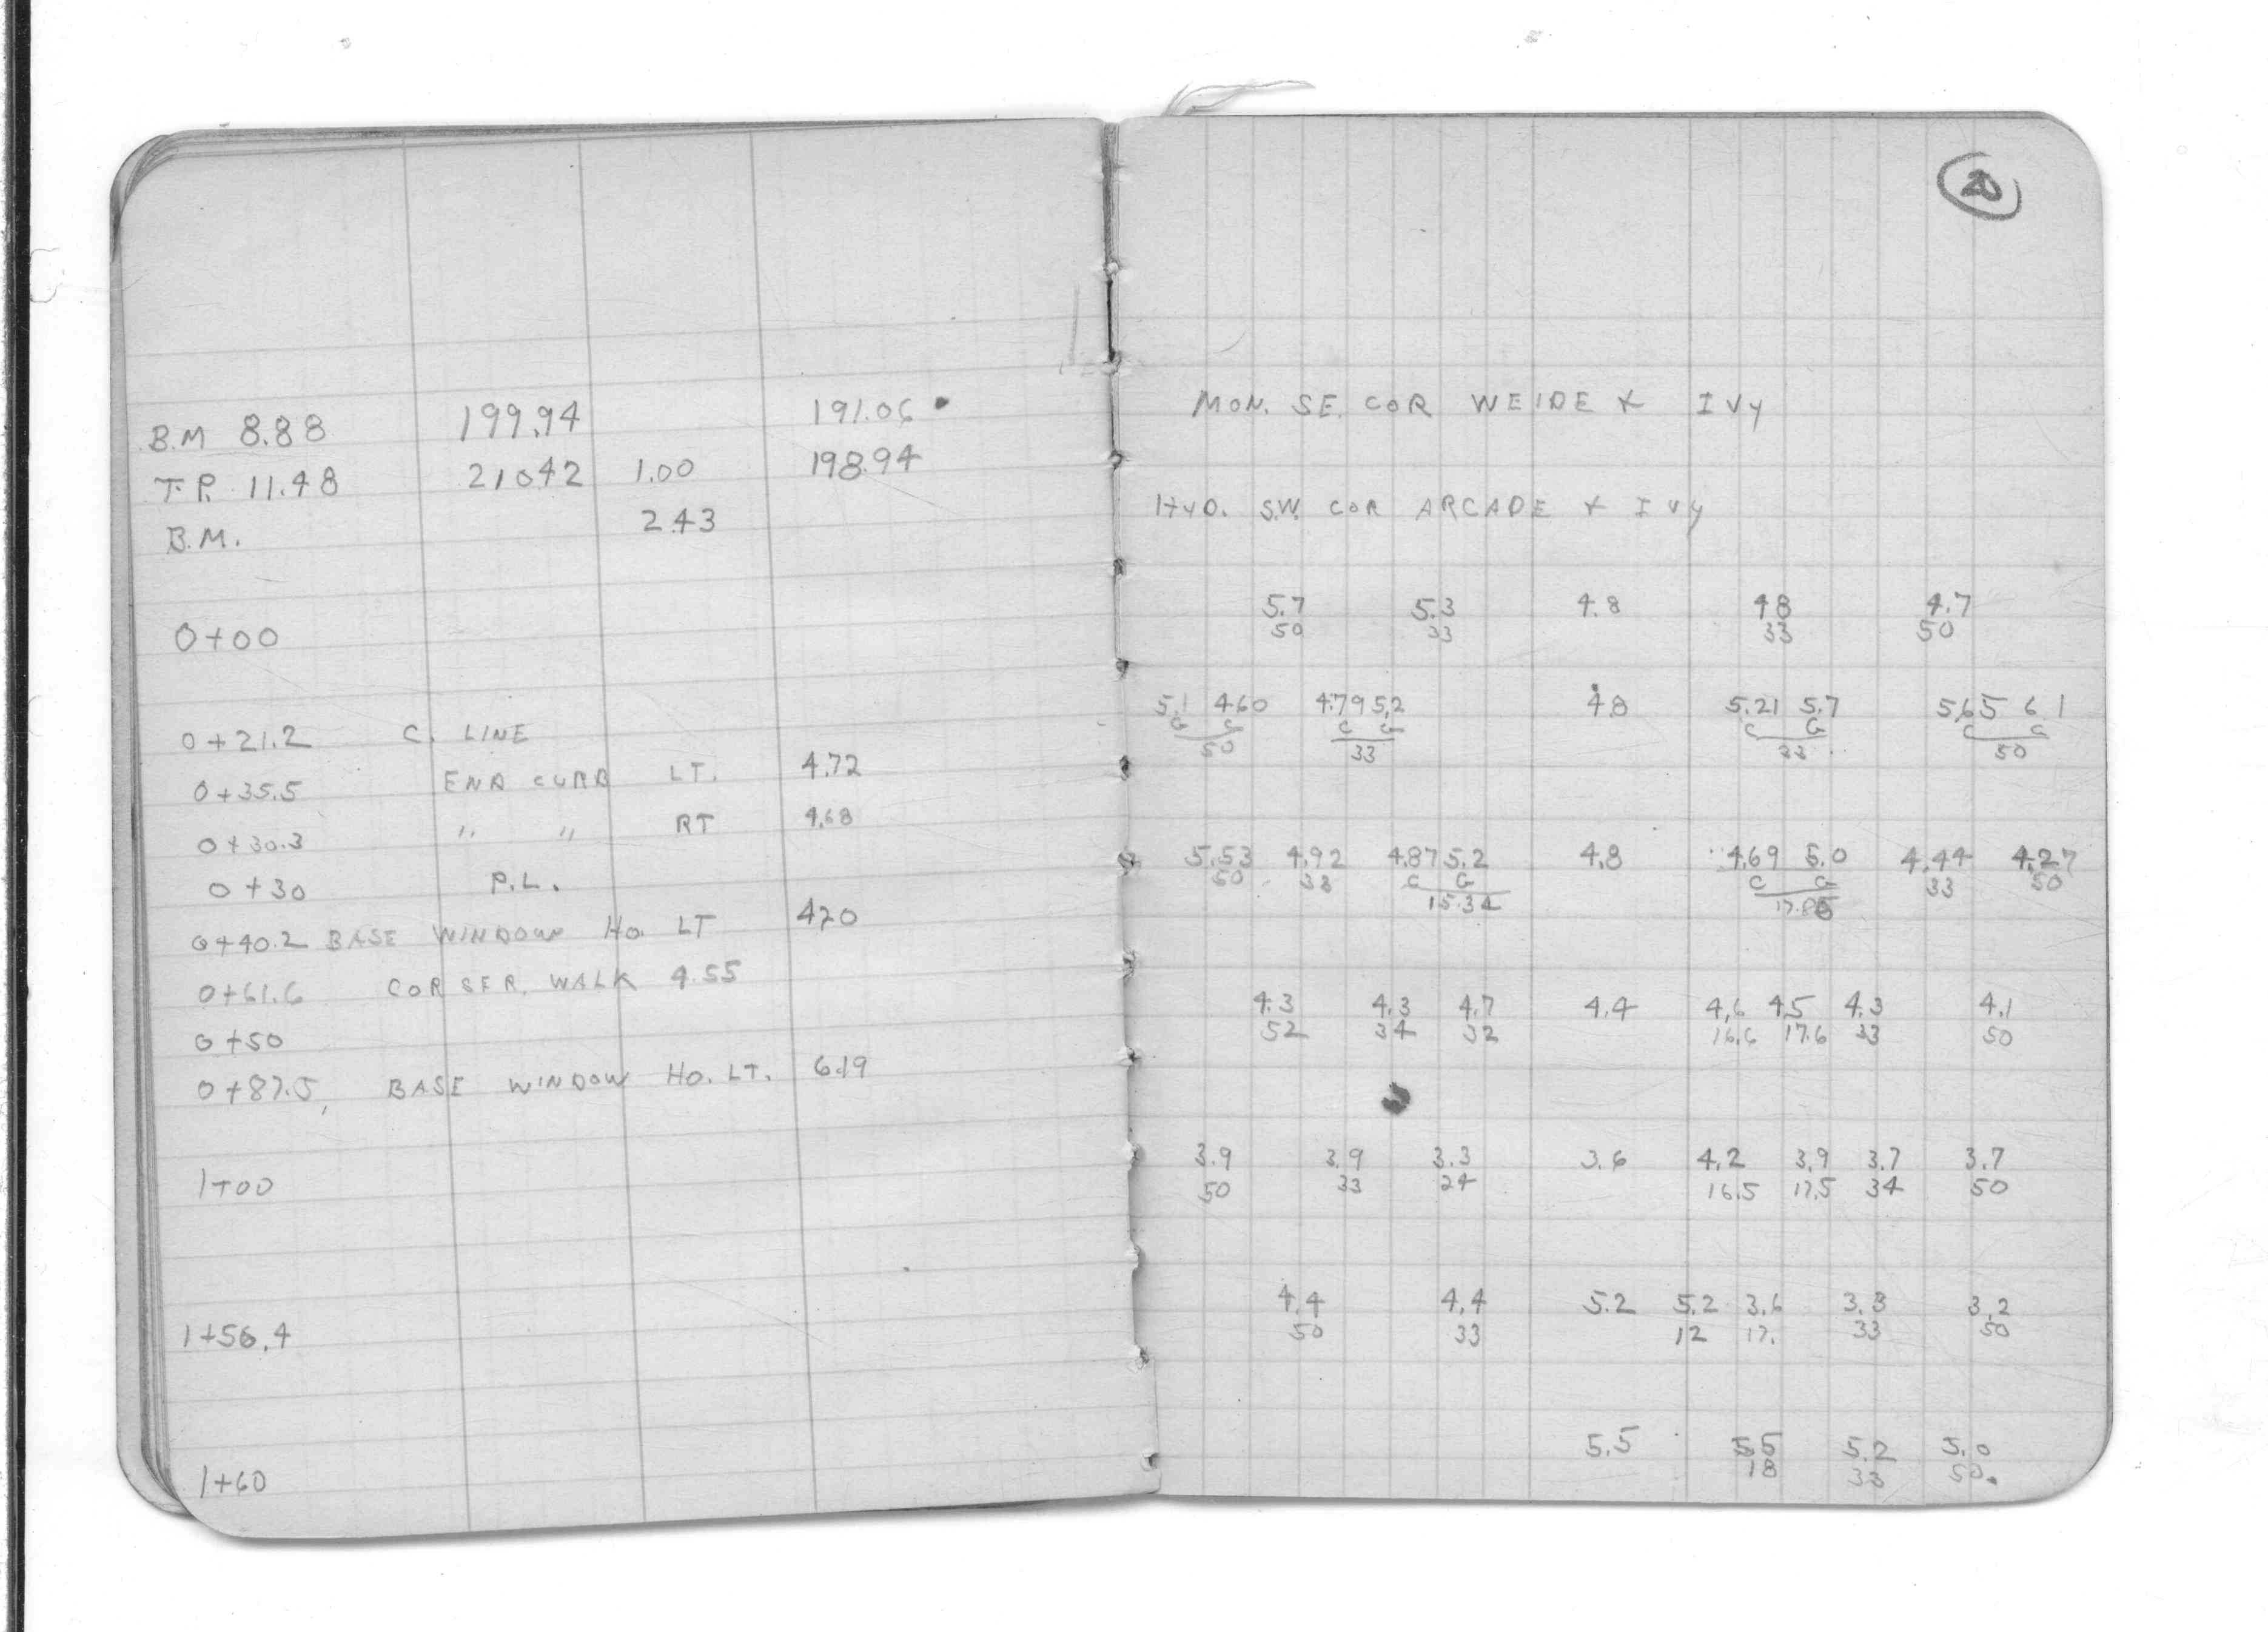 20
B.M 8.88 199.94 191.06
MON. SE. COR WEIDE & IVY
T.P. 11.48 210.42 1.00 198.94
B.M. 2.43
HYD. S.W. COR ARCADE & IVY
0+00
5.7 5.3 4.8 4.8 4.7
50 33 33 50
0+21.2 C. LINE
5.1 4.60 4.79 5.2 4.8 5.21 5.7 5.65 6.1
G C C G C G C G
50 33 33 50
0+35.5 END CURB LT. 4.72
0+30.3 " " RT 4.68
0+30 P.L.
5.53 4.92 4.87 5.2 4.8 4.69 5.0 4.44 4.27
50 33 C G C G 33 50
15.34 17.86
0+40.2 BASE WINDOW HO. LT 4.20
0+61.6 COR SER. WALK 4.55
0+50
4.3 4.3 4.7 4.4 4.6 4.5 4.3 4.1
52 34 32 16.6 17.6 33 50
0+87.5, BASE WINDOW HO. LT. 6.19
1+00
3.9 3.9 3.3 3.6 4.2 3.9 3.7 3.7
50 33 24 16.5 17.5 34 50
1+56.4
4.4 4.4 5.2 5.2 3.6 3.3 3.2
50 33 12 17. 33 50
1+60
5.5 5.5 5.2 5.0
18 33 50.